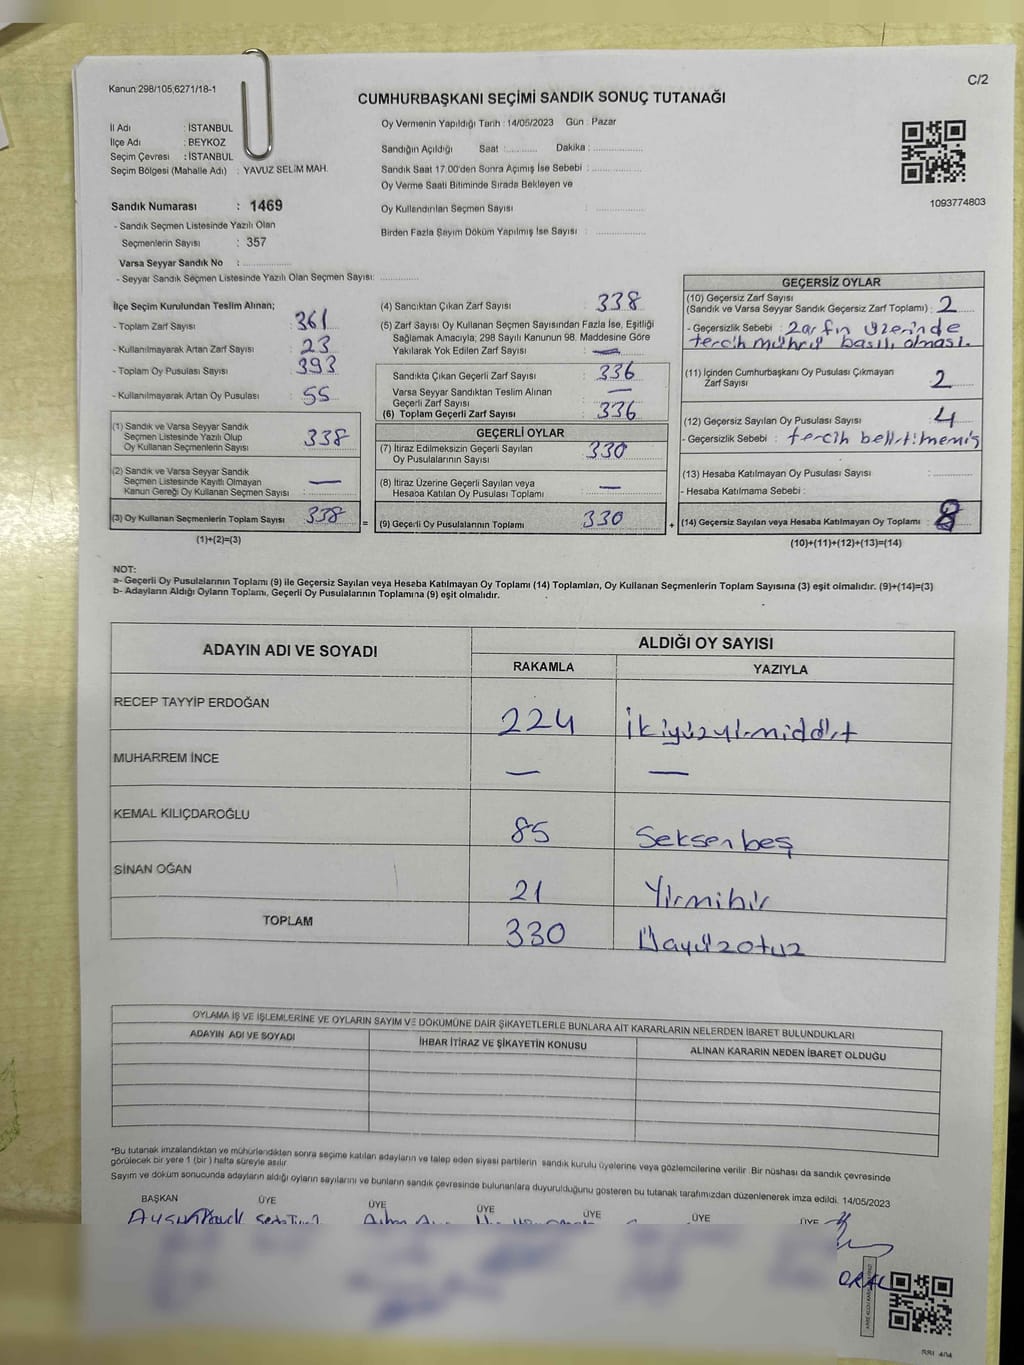 Kanun 298/105;6271/18-1
C/2
CUMHURBAŞKANI SEÇİMİ SANDIK SONUÇ TUTANAĞI
İl Adı : İSTANBUL
İlçe Adı : BEYKOZ
Seçim Çevresi : İSTANBUL
Seçim Bölgesi (Mahalle Adı) : YAVUZ SELİM MAH.
Sandık Numarası : 1469
- Sandık Seçmen Listesinde Yazılı Olan
Seçmenlerin Sayısı : 357
Varsa Seyyar Sandık No :
- Seyyar Sandık Seçmen Listesinde Yazılı Olan Seçmen Sayısı:
Oy Vermenin Yapıldığı Tarih : 14/05/2023 Gün : Pazar
Sandığın Açıldığı Saat : Dakika :
Sandık Saat 17.00'den Sonra Açımış İse Sebebi :
Oy Verme Saati Bitiminde Sırada Bekleyen ve
Oy Kullandırılan Seçmen Sayısı :
Birden Fazla Sayım Döküm Yapılmış İse Sayısı :
1093774803
İlçe Seçim Kurulundan Teslim Alınan;
- Toplam Zarf Sayısı : 361
- Kullanılmayarak Artan Zarf Sayısı : 23
- Toplam Oy Pusulası Sayısı : 393
- Kullanılmayarak Artan Oy Pusulası : 55
(1) Sandık ve Varsa Seyyar Sandık
Seçmen Listesinde Yazılı Olup
Oy Kullanan Seçmenlerin Sayısı : 338
(2) Sandık ve Varsa Seyyar Sandık
Seçmen Listesinde Kayıtlı Olmayan
Kanun Gereği Oy Kullanan Seçmen Sayısı : —
(3) Oy Kullanan Seçmenlerin Toplam Sayısı 338
(1)+(2)=(3)
(4) Sandıktan Çıkan Zarf Sayısı : 338
(5) Zarf Sayısı Oy Kullanan Seçmen Sayısından Fazla İse, Eşitliği
Sağlamak Amacıyla; 298 Sayılı Kanunun 98. Maddesine Göre
Yakılarak Yok Edilen Zarf Sayısı : —
Sandıkta Çıkan Geçerli Zarf Sayısı : 336
Varsa Seyyar Sandıktan Teslim Alınan
Geçerli Zarf Sayısı : —
(6) Toplam Geçerli Zarf Sayısı : 336
GEÇERLİ OYLAR
(7) İtiraz Edilmeksizin Geçerli Sayılan
Oy Pusulalarının Sayısı : 330
(8) İtiraz Üzerine Geçerli Sayılan veya
Hesaba Katılan Oy Pusulası Toplamı : —
= (9) Geçerli Oy Pusulalarının Toplamı : 330
GEÇERSİZ OYLAR
(10) Geçersiz Zarf Sayısı
(Sandık ve Varsa Seyyar Sandık Geçersiz Zarf Toplamı) : 2
- Geçersizlik Sebebi : Zarfın üzerinde
tercih mührü basılı olması.
(11) İçinden Cumhurbaşkanı Oy Pusulası Çıkmayan
Zarf Sayısı : 2
(12) Geçersiz Sayılan Oy Pusulası Sayısı : 4
- Geçersizlik Sebebi : tercih belirtilmemiş
(13) Hesaba Katılmayan Oy Pusulası Sayısı :
- Hesaba Katılmama Sebebi :
+ (14) Geçersiz Sayılan veya Hesaba Katılmayan Oy Toplamı : 8
(10)+(11)+(12)+(13)=(14)
NOT:
a- Geçerli Oy Pusulalarının Toplamı (9) ile Geçersiz Sayılan veya Hesaba Katılmayan Oy Toplamı (14) Toplamları, Oy Kullanan Seçmenlerin Toplam Sayısına (3) eşit olmalıdır. (9)+(14)=(3)
b- Adayların Aldığı Oyların Toplamı, Geçerli Oy Pusulalarının Toplamına (9) eşit olmalıdır.
ADAYIN ADI VE SOYADI
ALDIĞI OY SAYISI
RAKAMLA YAZIYLA
RECEP TAYYİP ERDOĞAN 224 İkiyüzyirmidört
MUHARREM İNCE — —
KEMAL KILIÇDAROĞLU 85 Seksenbeş
SİNAN OĞAN 21 Yirmibir
TOPLAM 330 Üçyüzotuz
OYLAMA İŞ VE İŞLEMLERİNE VE OYLARIN SAYIM VE DÖKÜMÜNE DAİR ŞİKAYETLERLE BUNLARA AİT KARARLARIN NELERDEN İBARET BULUNDUKLARI
ADAYIN ADI VE SOYADI İHBAR İTİRAZ VE ŞİKAYETİN KONUSU ALINAN KARARIN NEDEN İBARET OLDUĞU
*Bu tutanak imzalandıktan ve mühürlendikten sonra seçime katılan adayların ve talep eden siyasi partilerin sandık kurulu üyelerine veya gözlemcilerine verilir. Bir nüshası da sandık çevresinde
görülecek bir yere 1 (bir) hafta süreyle asılır.
Sayım ve döküm sonucunda adayların aldığı oyların sayılarını ve bunların sandık çevresinde bulunanlara duyurulduğunu gösteren bu tutanak tarafımızdan düzenlenerek imza edildi. 14/05/2023
BAŞKAN ÜYE ÜYE ÜYE ÜYE ÜYE ÜYE
ORAL